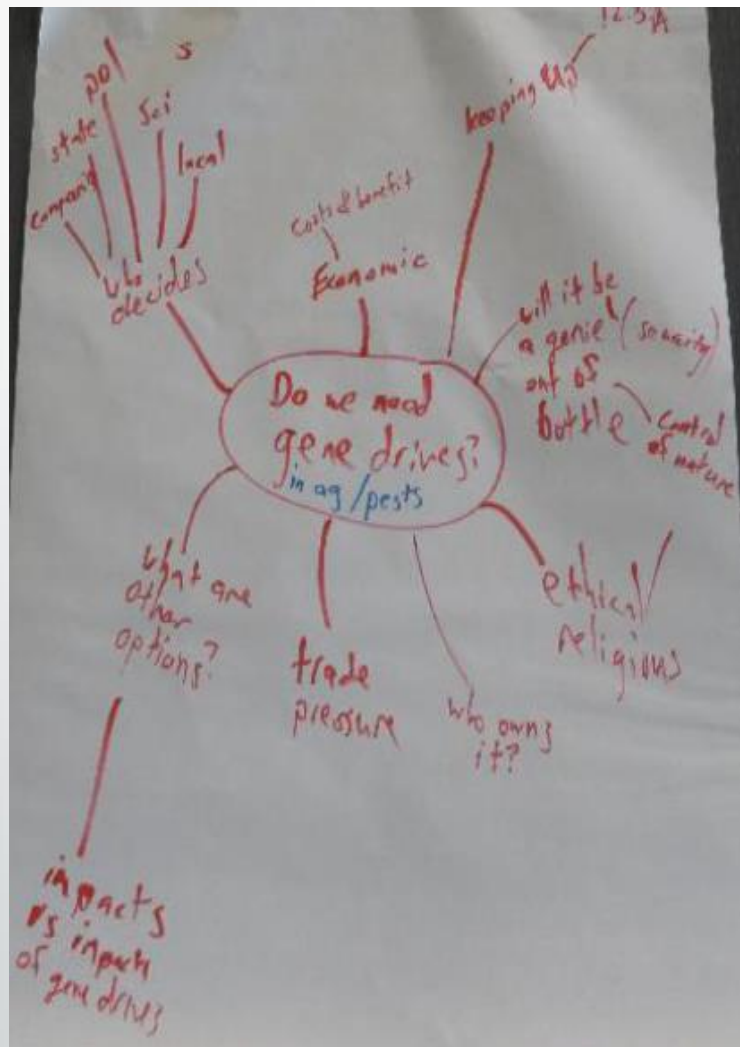 Do we need
gene drives?
in ag/pests
who
decides
state
pol
s
Sci
local
Economic
costs & benefit
keeping up
will it be
a genie
out of
bottle
control
of nature
ethical/
religious
who owns
it?
trade
pressure
what are
other
options?
impacts
vs impacts
of gene drives